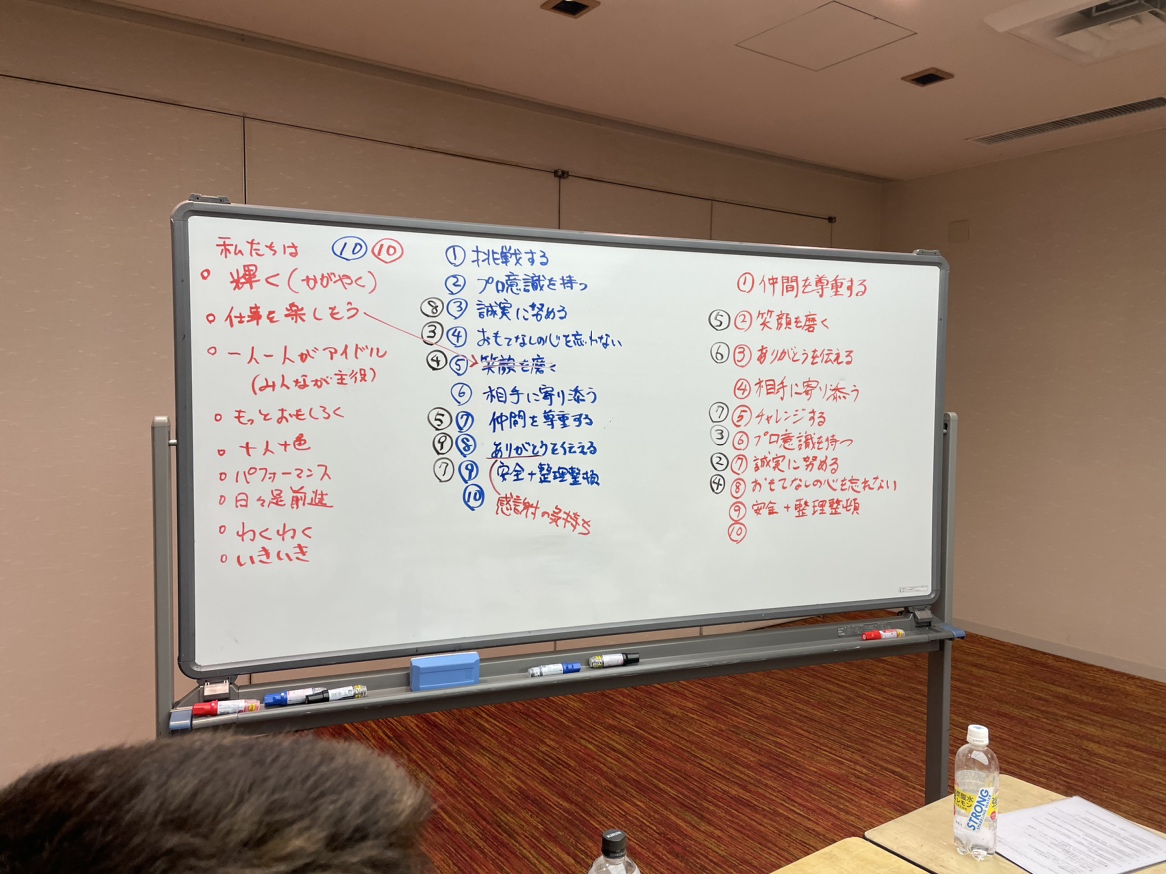 私たちは ⑩ ⑩
○ 輝く(かがやく)
○ 仕事を楽しもう
○ 一人一人がアイドル
(みんなが主役)
○ もっとおもしろく
○ 十人十色
○ パフォーマンス
○ 日々是前進
○ わくわく
○ いきいき
① 挑戦する
② プロ意識を持つ
⑧ ③ 誠実に努める
③ ④ おもてなしの心を忘れない
④ ⑤ 笑顔を磨く
⑥ 相手に寄り添う
⑤ ⑦ 仲間を尊重する
⑨ ⑧ ありがとうを伝える
⑦ ⑨ 安全+整理整頓
⑩
感謝の気持ち
① 仲間を尊重する
⑤ ② 笑顔を磨く
⑥ ③ ありがとうを伝える
④ 相手に寄り添う
⑦ ⑤ チャレンジする
③ ⑥ プロ意識を持つ
② ⑦ 誠実に努める
④ ⑧ おもてなしの心を忘れない
⑨ 安全+整理整頓
⑩
レモン
STRONG